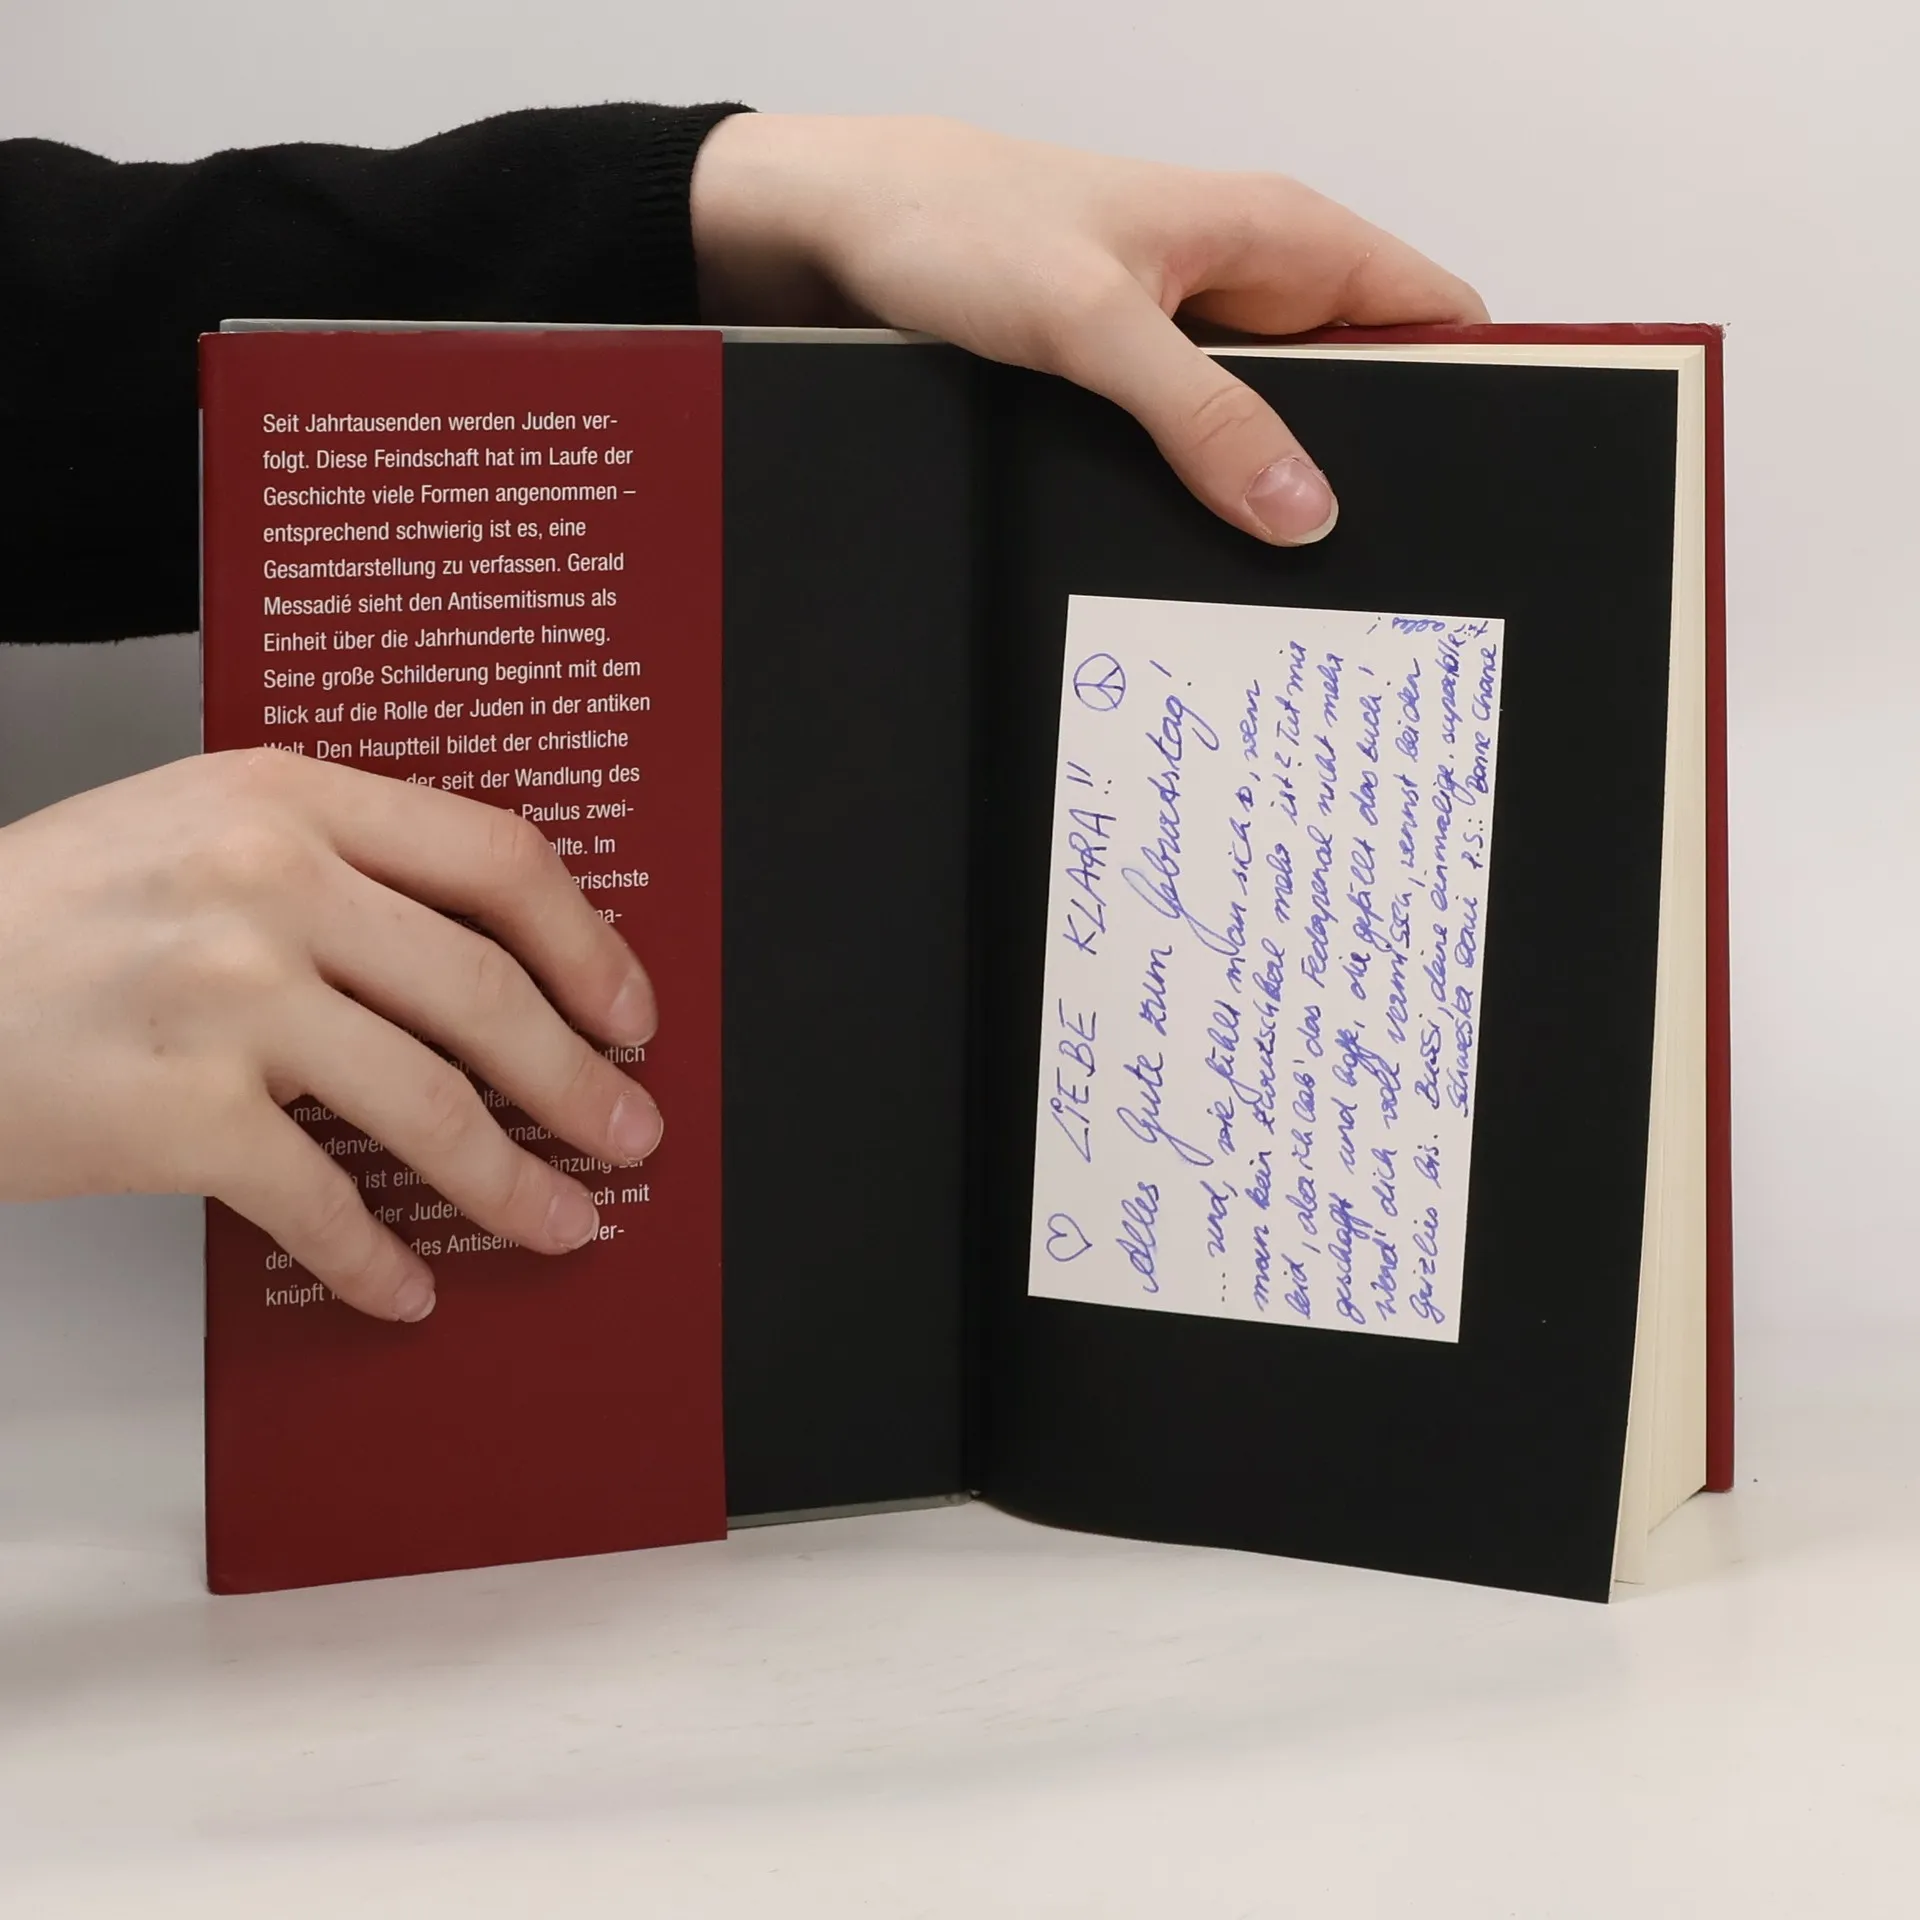 Seit Jahrtausenden werden Juden ver-
folgt. Diese Feindschaft hat im Laufe der
Geschichte viele Formen angenommen –
entsprechend schwierig ist es, eine
Gesamtdarstellung zu verfassen. Gerald
Messadié sieht den Antisemitismus als
Einheit über die Jahrhunderte hinweg.
Seine große Schilderung beginnt mit dem
Blick auf die Rolle der Juden in der antiken
Welt. Den Hauptteil bildet der christliche
der seit der Wandlung des
Paulus zwei-
llte. Im
erischste
na-
utlich
mac
denve
ist ein
der Juden
uch mit
der des Antisem ver-
knüpft
LIEBE KLARA!!
Alles Gute zum Geburtstag!
... und, wie fühlt man sich so, wenn
man kein mehr ist? Tut mir
leid, aber ich hab' das Federpenal nicht mehr
geschafft und hoffe, dir gefällt das Buch!
Werd' dich voll vermissen, wennst bei den
Grizlies bis. Bussi, deine einmalige, supertolle
Schwesta Dani P.S.: Danke
für
alles!